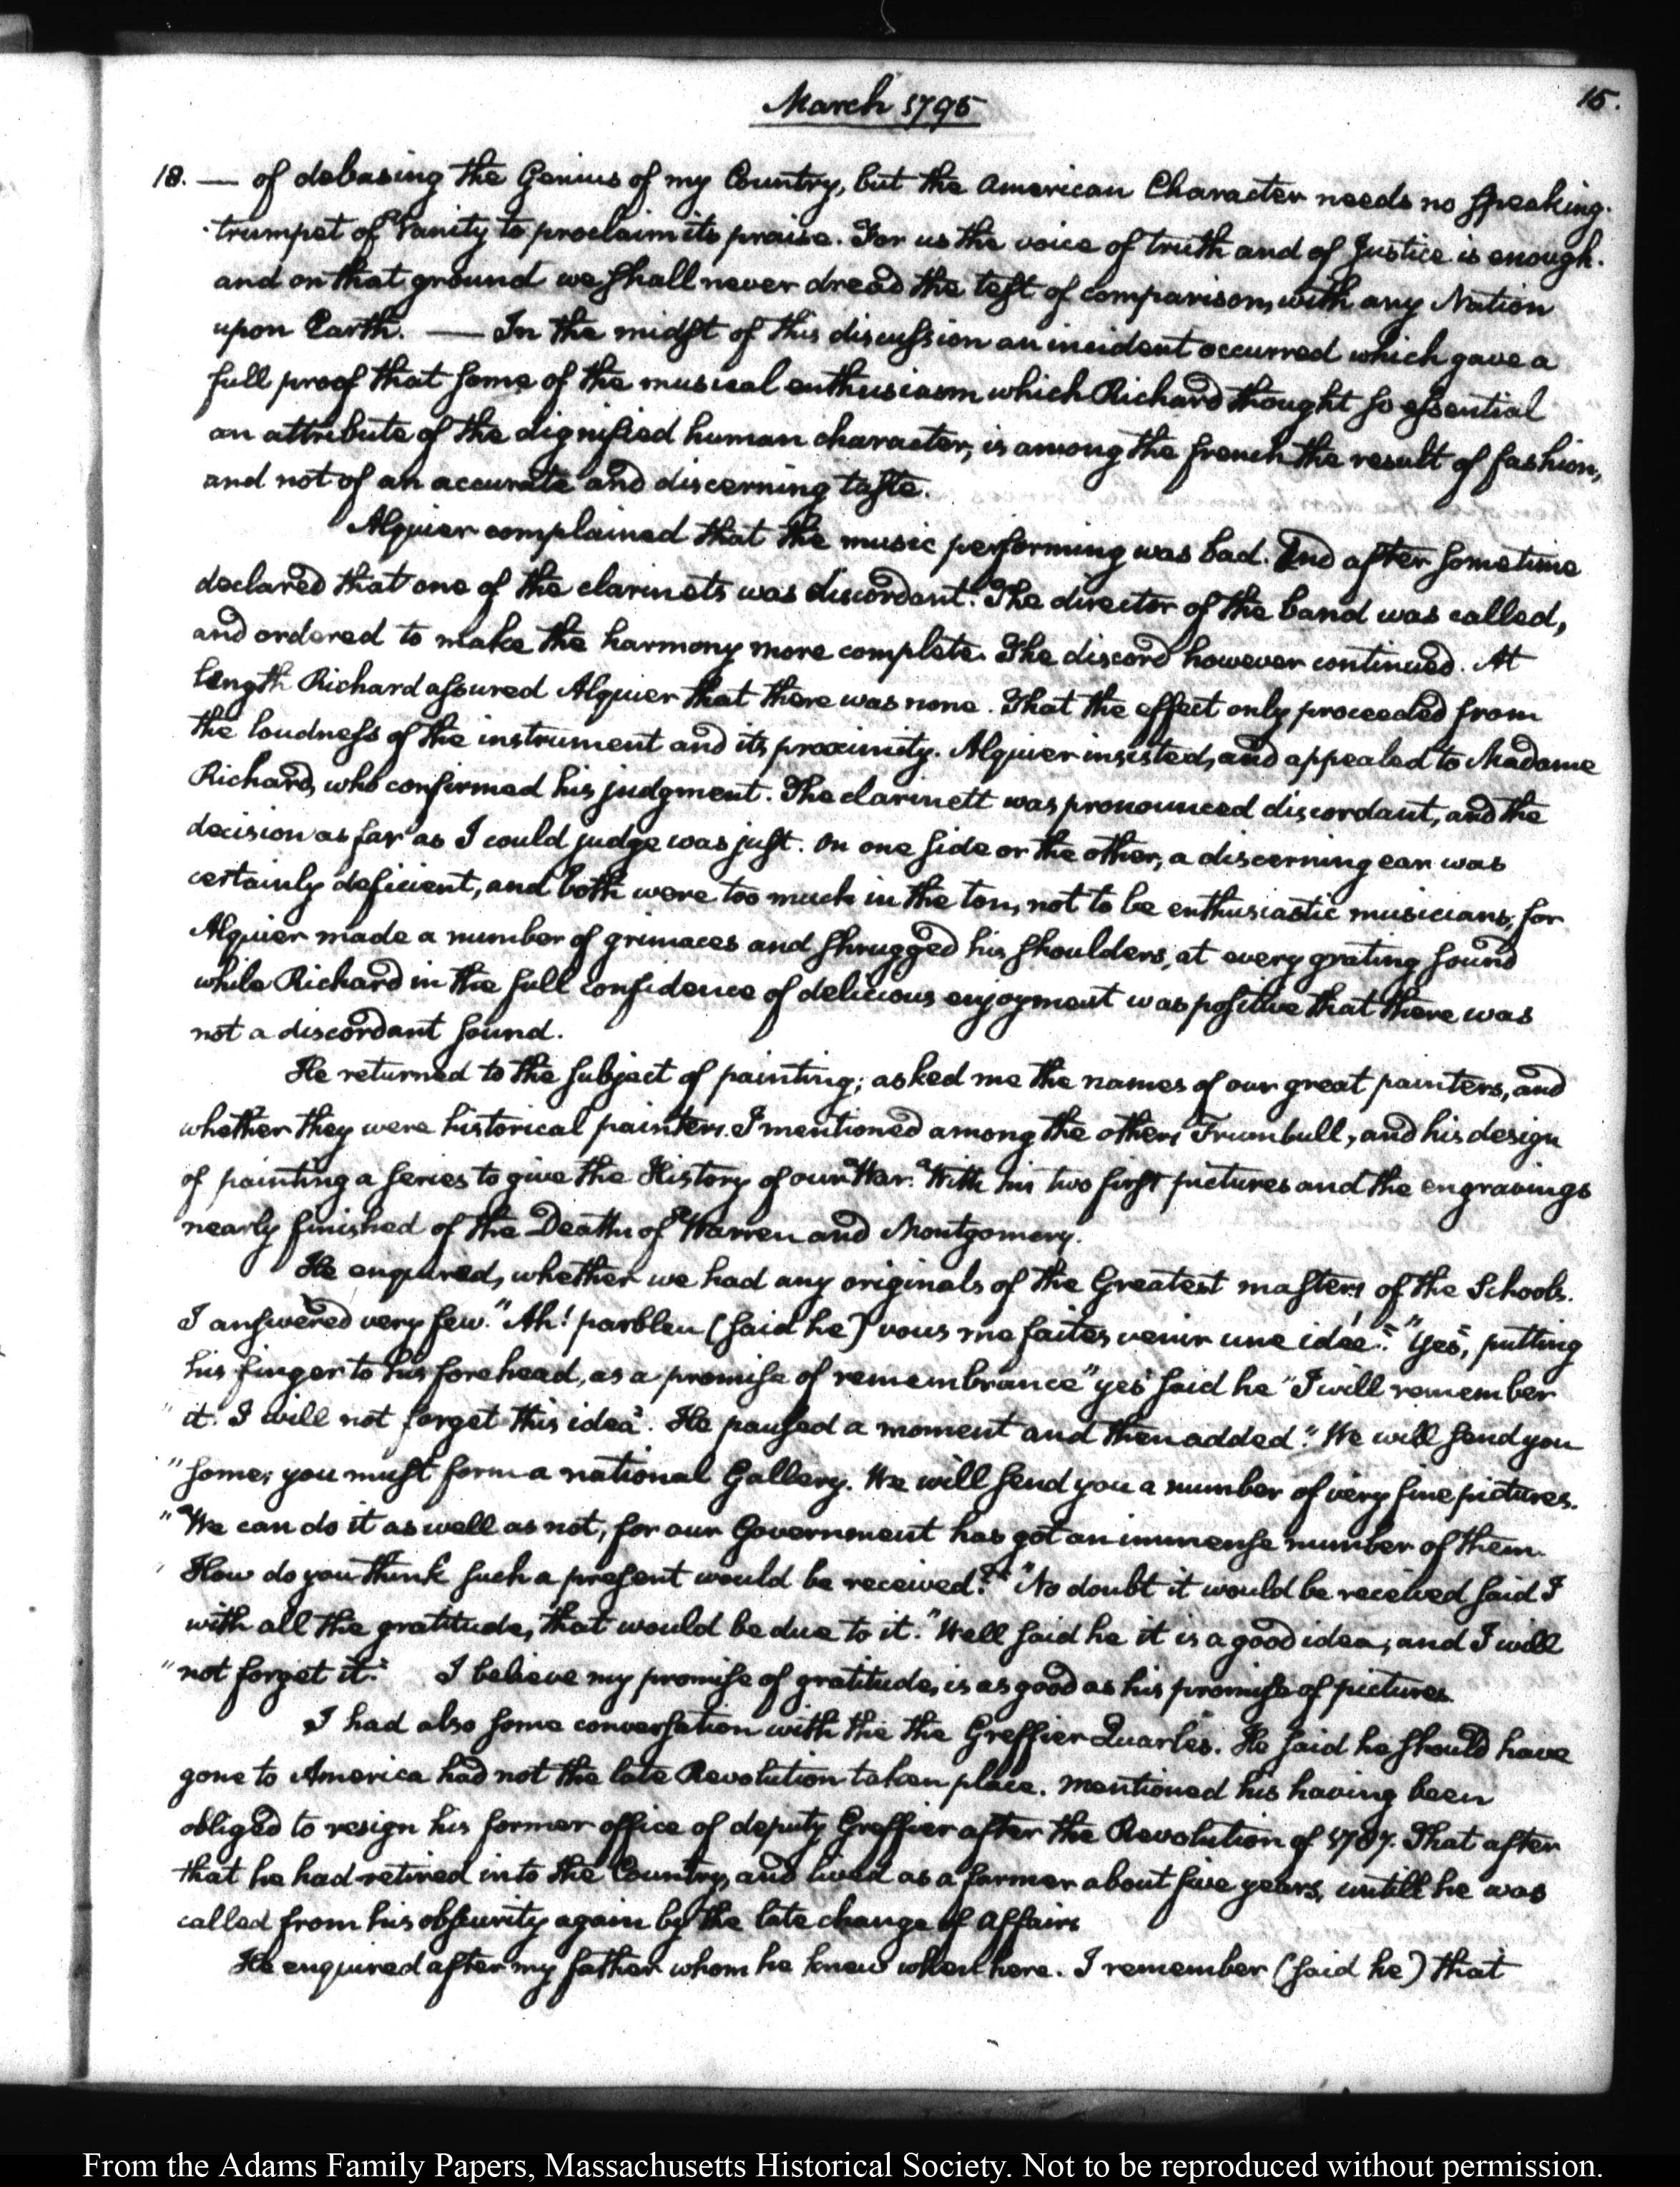 March 1795
15.
18. — of debasing the Genius of my Country, but the American Character needs no speaking-
trumpet of Vanity to proclaim its praise. For us the voice of truth and of Justice is enough.
and on that ground we shall never dread the test of comparison, with any Nation
upon Earth. — In the midst of this discussion an incident occurred which gave a
full proof that some of the musical enthusiasm which Richard thought so essential
an attribute of the dignified human character, is among the french the result of fashion,
and not of an accurate and discerning taste.
Alquier complained that the music performing was bad. And after sometime
declared that one of the clarinets was discordant. The director of the band was called,
and ordered to make the harmony more complete. The discord however continued. At
length Richard assured Alquier that there was none. That the effect only proceeded from
the loudness of the instrument and its proximity. Alquier insisted, and appealed to Madame
Richard, who confirmed his judgment. The clarinett was pronounced discordant, and the
decision as far as I could judge was just. On one side or the other, a discerning ear was
certainly deficient, and both were too much in the ton, not to be enthusiastic musicians, for
Alquier made a number of grimaces and shrugged his shoulders, at every grating sound
while Richard in the full confidence of delicious enjoyment was positive that there was
not a discordant sound.
He returned to the subject of painting; asked me the names of our great painters, and
whether they were historical painters. I mentioned among the others Trumbull, and his design
of painting a series to give the History of our War. With his two first pictures and the engravings
nearly finished of the Deaths of Warren and Montgomery.
He enquired, whether we had any originals of the Greatest masters of the Schools.
I answered very few. "Ah! parbleu (said he) vous me faites venir une idée." "Yes", putting
his finger to his forehead, as a promise of remembrance "yes" said he "I will remember
" it. I will not forget this idea". He paused a moment and then added. "We will send you
" some; you must form a national Gallery. We will send you a number of very fine pictures.
" We can do it as well as not, for our Government has got an immense number of them.
" How do you think such a present would be received?" "No doubt it would be received said I
with all the gratitude, that would be due to it." "Well said he it is a good idea, and I will
" not forget it." I believe my promise of gratitude, is as good as his promise of pictures.
I had also some conversation with the the Greffier Quarles. He said he should have
gone to America had not the late Revolution taken place. Mentioned his having been
obliged to resign his former office of deputy Greffier after the Revolution of 1787. That after
that he had retired into the Country, and lived as a farmer about five years, untill he was
called from his obscurity again by the late change of affairs
He enquired after my father whom he knew when here. I remember (said he) that
From the Adams Family Papers, Massachusetts Historical Society. Not to be reproduced without permission.